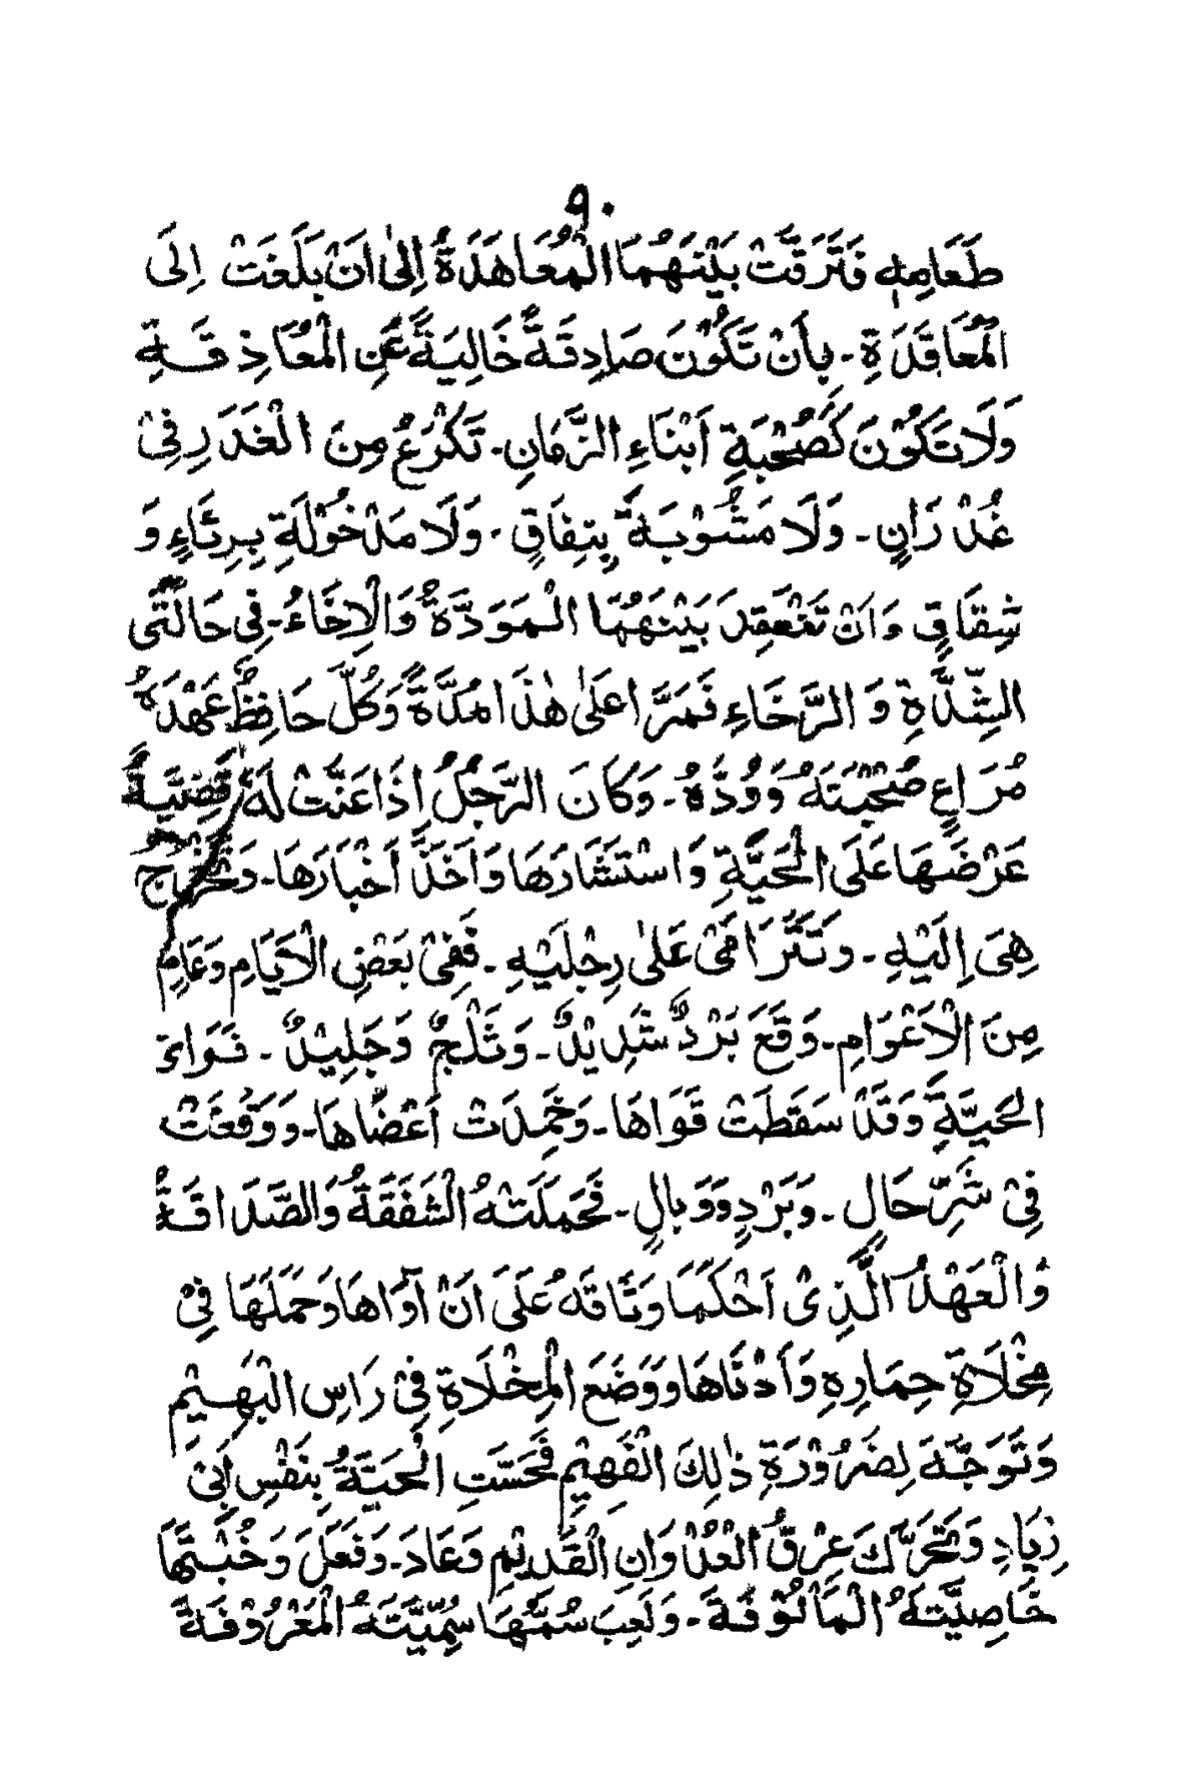 ٩٠
طَعَامِهٖ فَتَرَقَّتْ بَيْنَهُمَا الْمُعَاهَدَةُ اِلىٰ اَنْ بَلَغَتْ اِلَى
الْمُعَاقَدَةِ ۔ بِأَنْ تَكُوْنَ صَادِقَةً خَالِيَةً عَنِ الْمُعَاذِقَةِ
وَلَا تَكُوْنَ كَصُحْبَةِ اَبْنَاءِ الزَّمَانِ ۔ تَكْرَعُ مِنَ الْغَدَرِ فِىْ
غُدْرَانٍ ۔ وَلَا مَشُوْبَةً بِنِفَاقٍ ۔ وَلَا مَدْخُوْلَةِ بِرِئَاءٍ وَ
شِقَاقٍ وَاَنْ تَنْعَقِدَ بَيْنَهُمَا الْمَوَدَّةُ وَالْاِخَاءُ ۔ فِى حَالَتَى
الشِّدَّةِ وَ الرَّخَاءِ فَمَرَّا عَلىٰ هٰذَا مُدَّةً وَكُلٌّ حَافِظٌ عَهْدَهُ
مُرَاعٍ صُحْبَتَهُ وَوُدَّهُ ۔ وَكَانَ الرَّجُلُ اِذَا عَنَّتْ لَهُ قَضِيَّةٌ
عَرْضَهَا عَلَى الْحَيَّةِ وَاسْتَشَارَهَا وَاَخَذَ اَخْبَارَهَا ۔ وَتَخْرُجُ
هِىَ اِلَيْهِ ۔ وَتَتَرَامَىْ عَلىٰ رِجْلَيْهِ ۔ فَفِىْ بَعْضِ الْاَيَامِ وَعَامٍ
مِنَ الْاَعْوَامِ ۔ وَقَعَ بَرْدٌ شَدِيْدٌ ۔ وَثَلْجٌ وَجَلِيْدٌ ۔ فَوَاءَ
الحَيَّةَ وَقَدْ سَقَطَتْ قَوَاهَا ۔ وَخَمِدَتْ اَعْضَاهَا ۔ وَوَقَعَتْ
فِىْ شَرِّ حَالٍ ۔ وَبَرْدٍ وَوَبَالٍ ۔ فَحَمَلَتْهُ الْشَفَقَةُ وَالصَّدَاقَةُ
وَالْعَهْدُ الَّذِىْ اَحْكَمَا وَثَاقَهُ عَلَى اَنْ آوَاهَا وَحَمَلَهَا فِىْ
مِخْلَاةِ حِمَارِهِ وَاَدْنَاهَا وَوَضَعَ الْمِخْلَاةِ فِىْ رَاسِ الْبَهِيْمِ
وَتَوَجَّهَ لِضَرُوْرَةِ ذٰلِكَ الْفَهِيْمِ فَحَسَّتِ الْحَيَّةُ بِنَفْسِ اَبِىْ
زِيَادِ وَتَحَرَّكَ عِرْقُ الْعُدْوَانِ الْقَدِيْمِ وَعَادَ ۔ وَفَعَلَ وَخُبْثَهَا
خَاصِيَّتَهُ الْمَالُوْفَةَ ۔ وَلَعِبَ سُمَّهَا سُمِّيَّتَهُ الْمَعْرُوْفَةَ